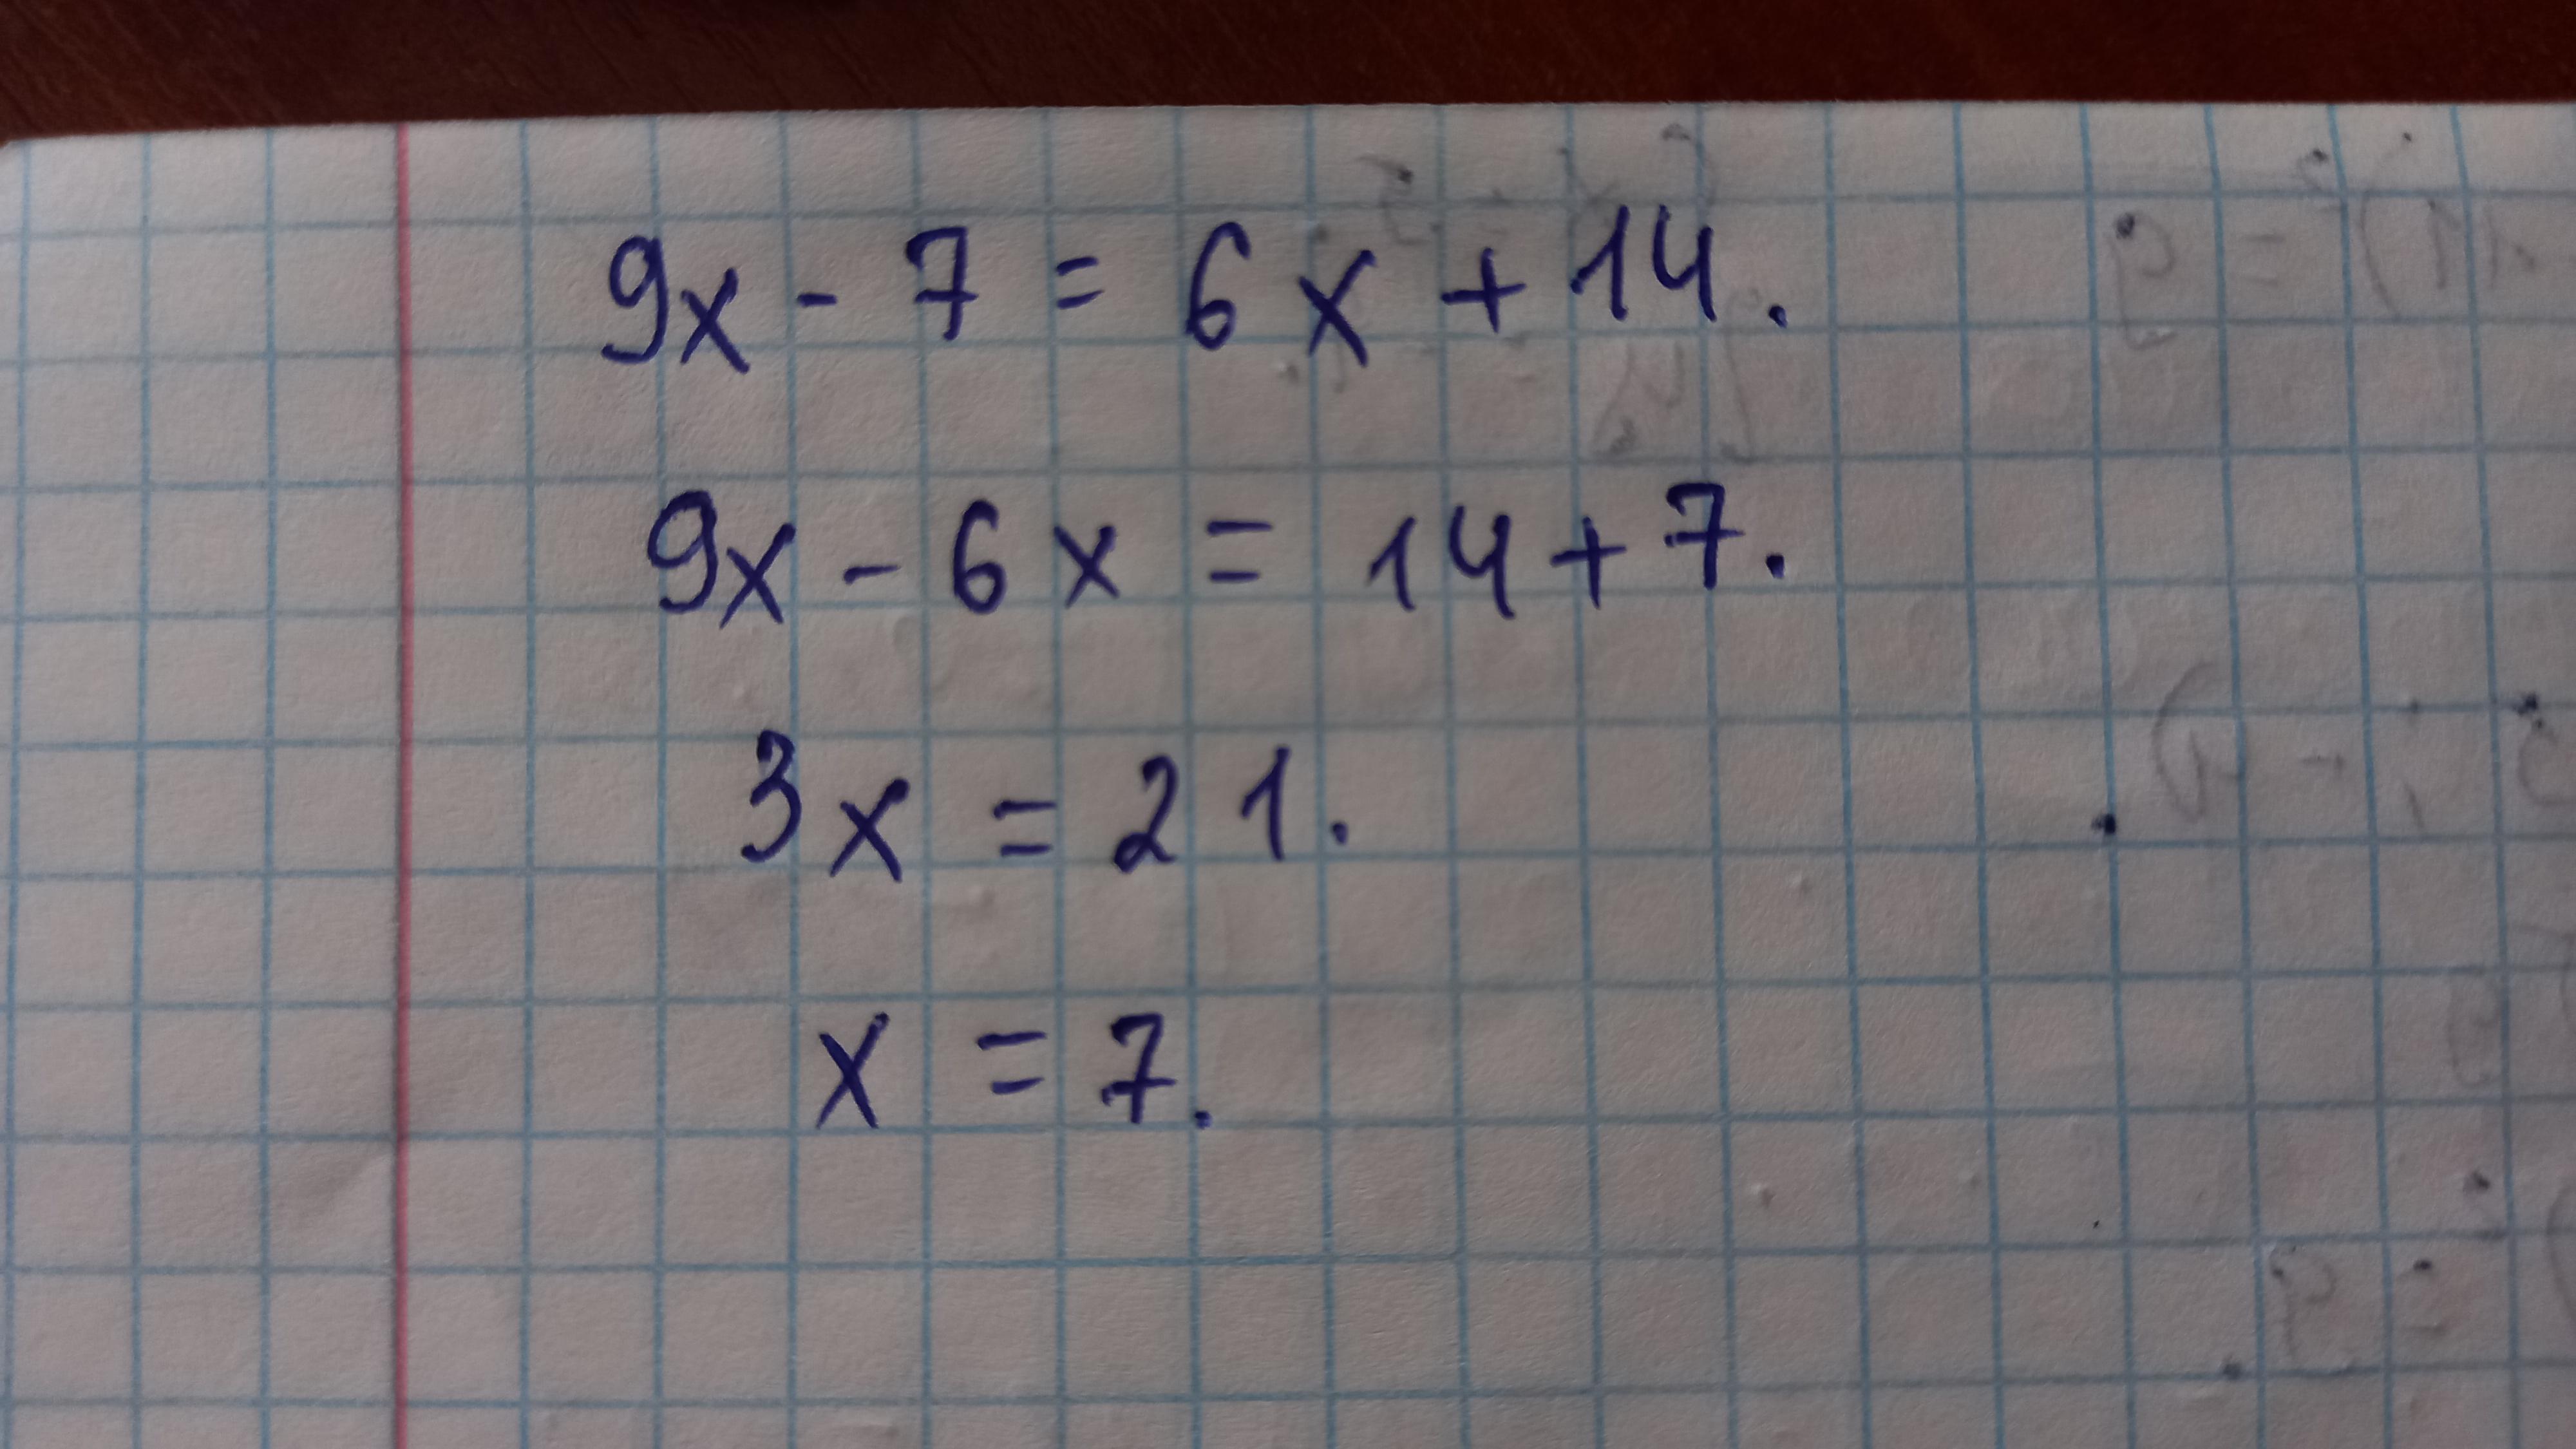 9x - 7 = 6x + 14.
9x - 6x = 14 + 7.
3x = 21.
x = 7.